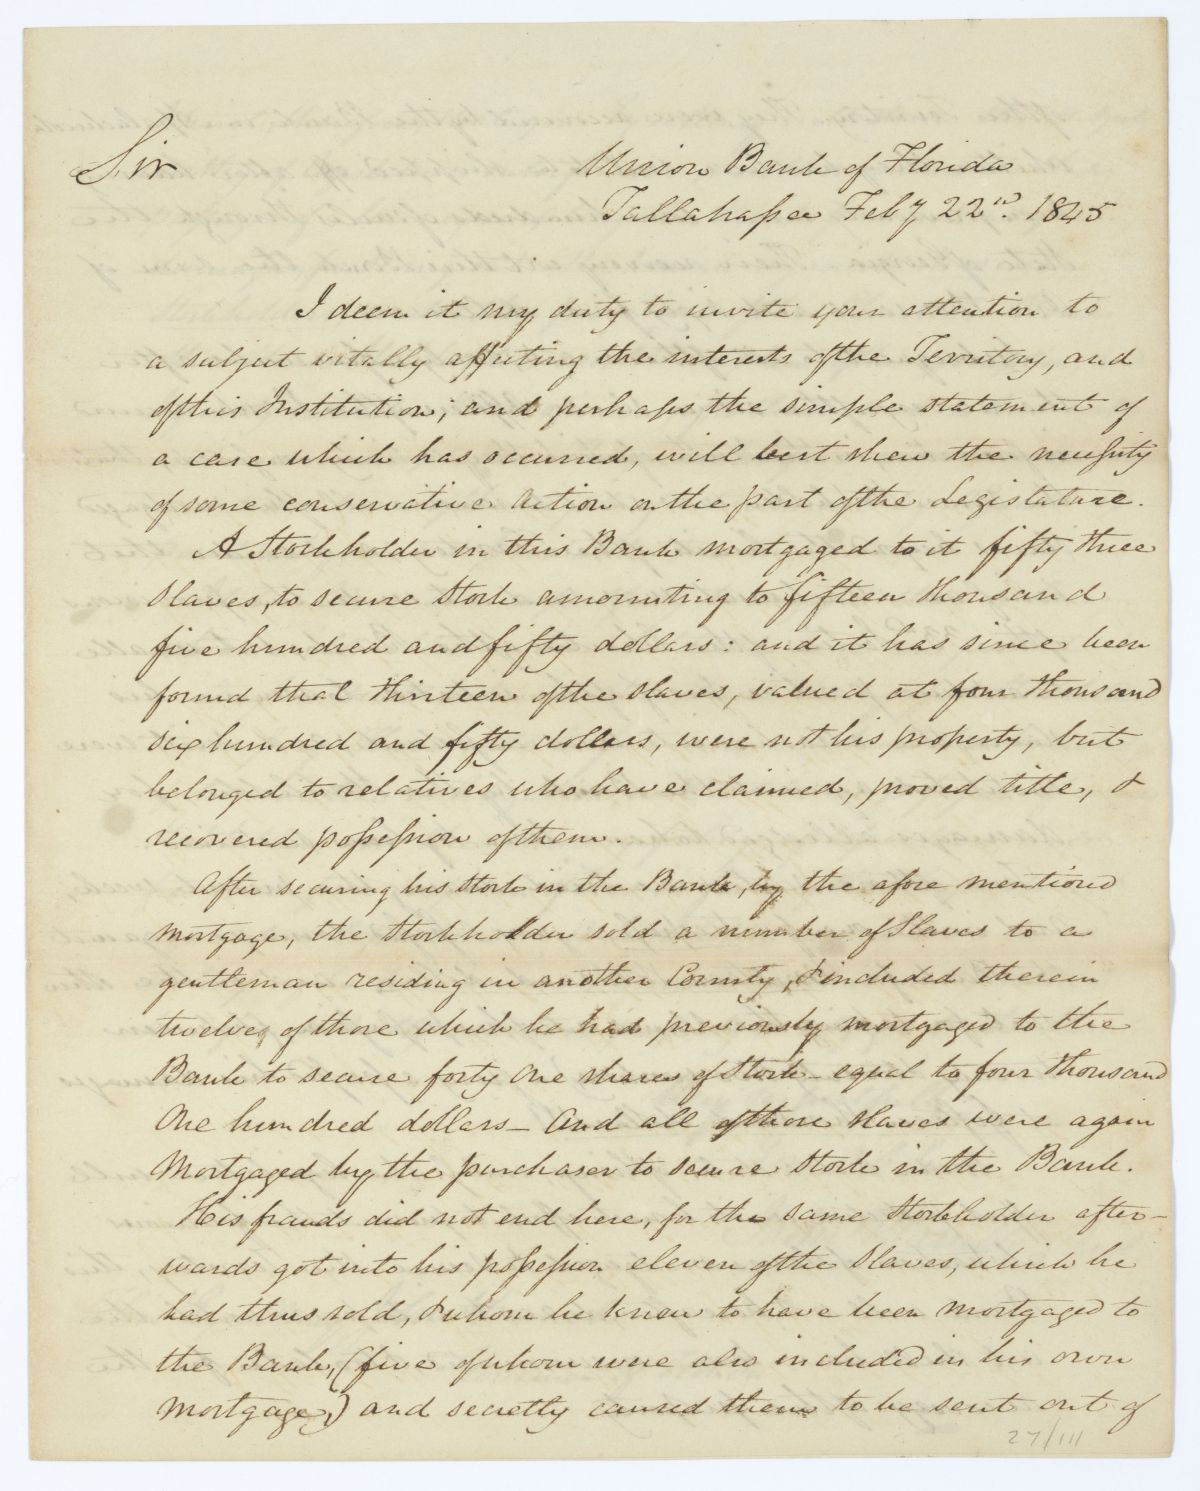 Sir
Union Bank of Florida
Tallahassee Feby 22nd. 1845
I deem it my duty to invite your attention to
a subject vitally affecting the interests of the Territory, and
of this Institution; and perhaps the simple statement of
a case which has occurred, will best shew the necessity
of some conservative action on the part of the Legislature.
A Stockholder in this Bank mortgaged to it fifty three
slaves, to secure stock amounting to fifteen thousand
five hundred and fifty dollars: and it has since been
found that thirteen of the slaves, valued at four thousand
six hundred and fifty dollars, were not his property, but
belonged to relatives who have claimed, proved title, &
recovered possession of them.
After securing his stock in the Bank, by the afore mentioned
mortgage, the Stockholder sold a number of slaves to a
gentleman residing in another County, & included therein
twelve, of those which he had previously mortgaged to the
Bank to secure forty one shares of Stock - equal to four thousand
One hundred dollars - And all of those slaves were again
Mortgaged by the purchaser to secure stock in the Bank.
His frauds did not end here, for the same Stockholder after-
wards got into his possession eleven of the slaves, which he
had thus sold, & whom he knew to have been mortgaged to
the Bank, (five of whom were also included in his own
Mortgage,) and secretly caused them to be sent out of
27/111